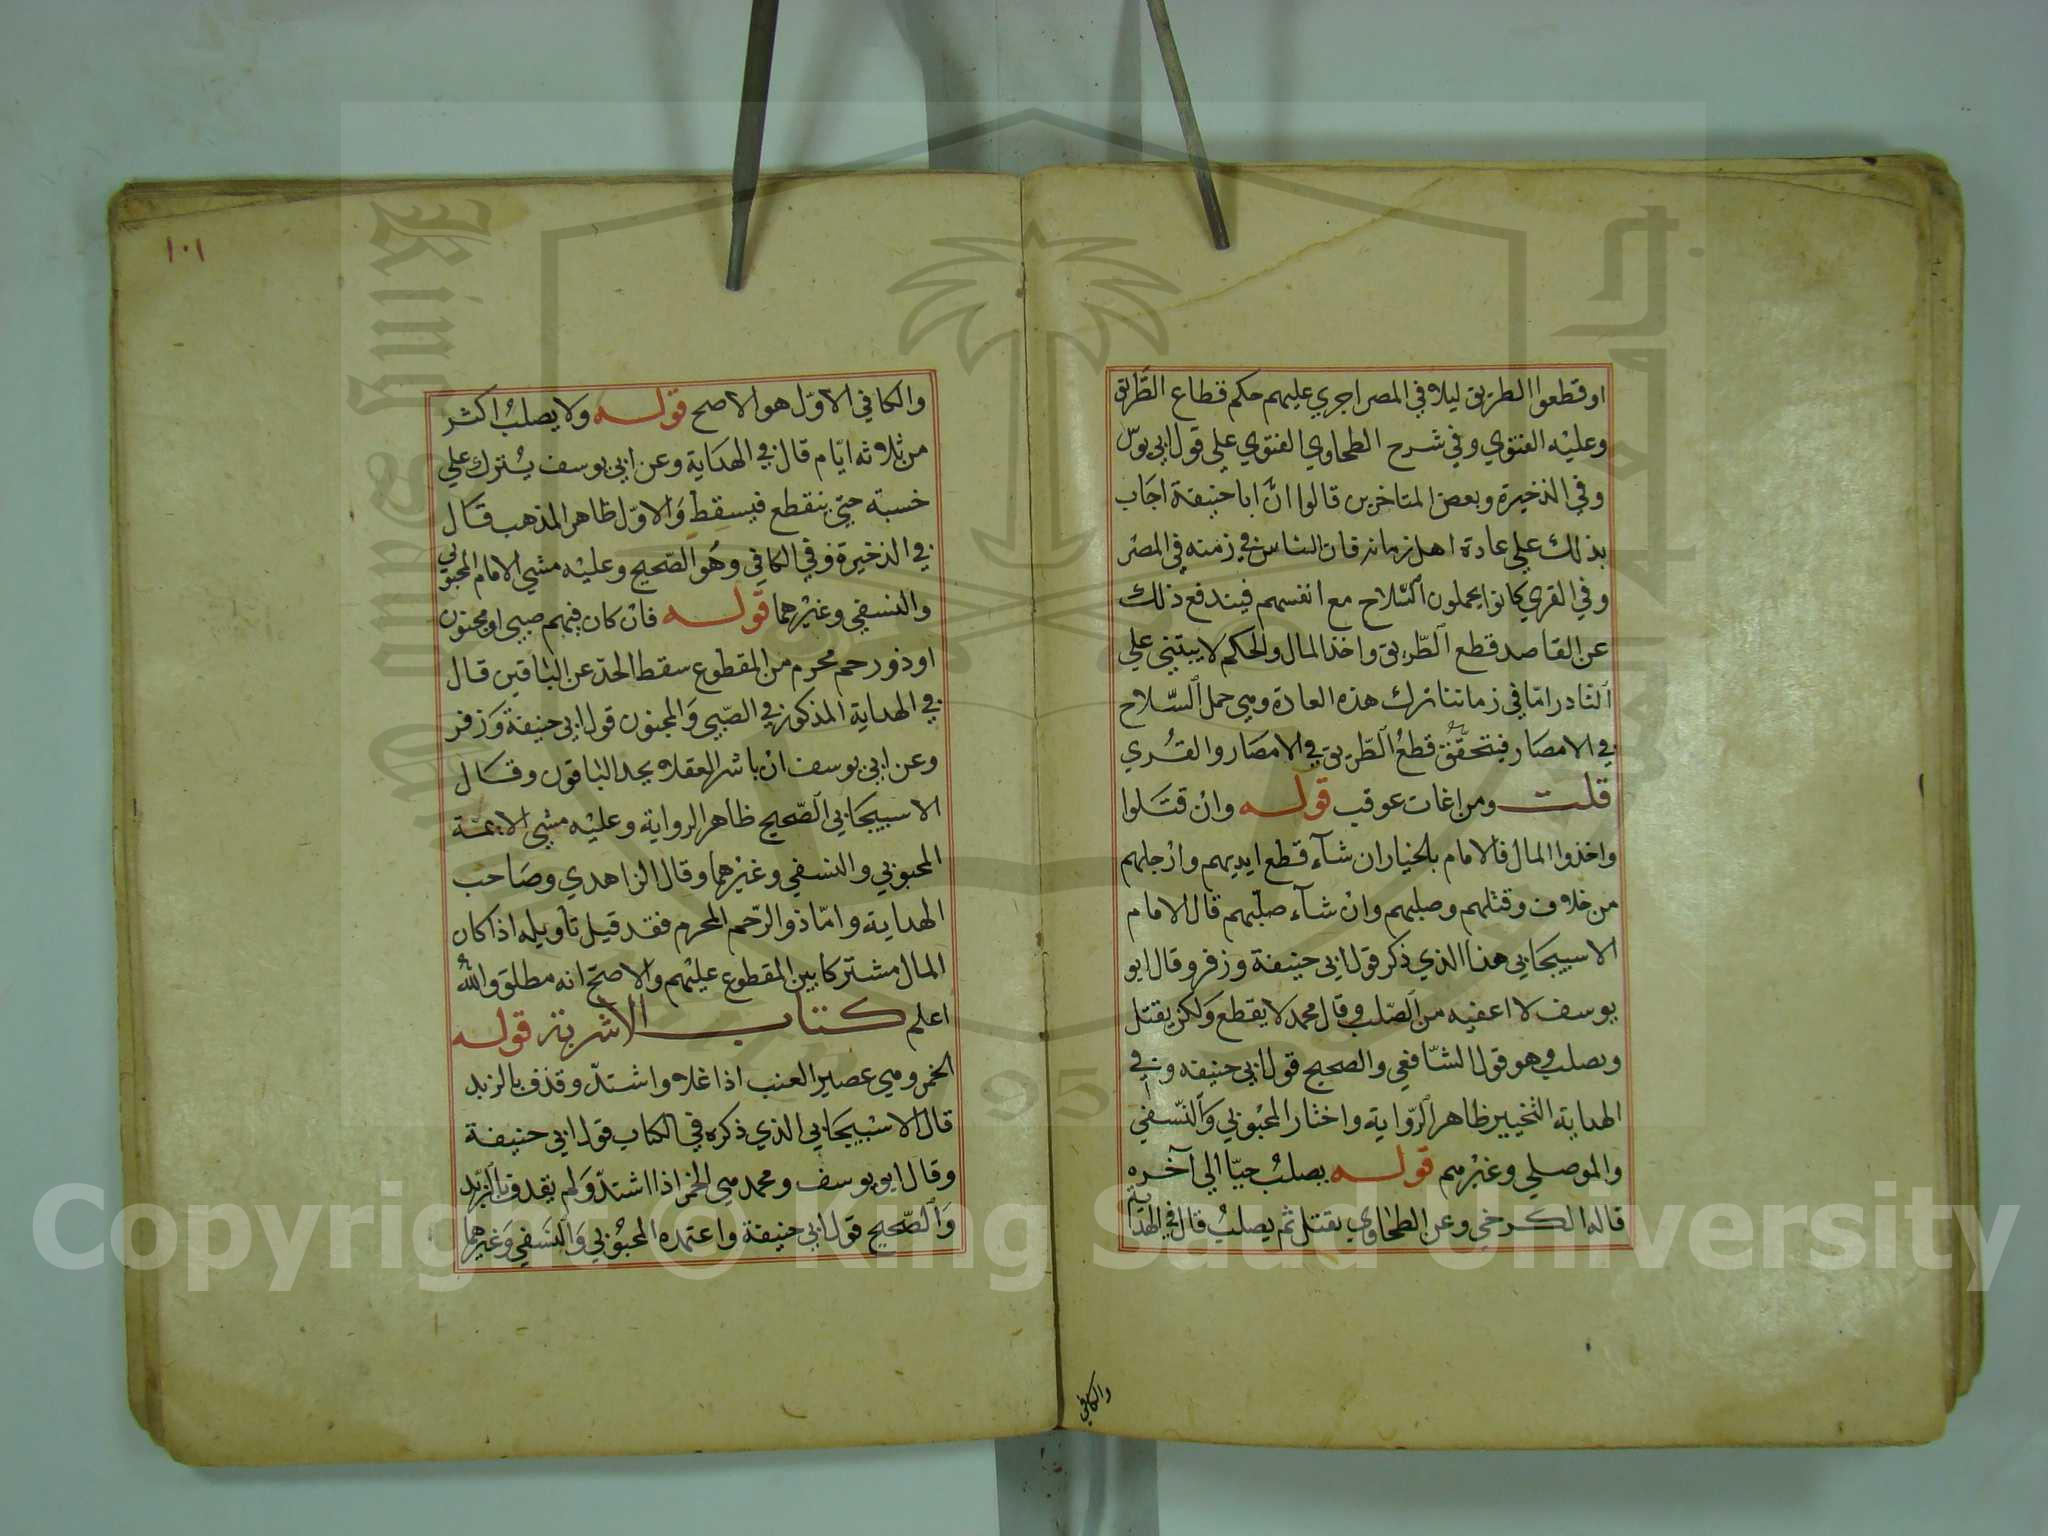 او قطعوا الطريق ليلا في المصر اجري عليهم حكم قطاع الطريق
وعليه الفتوي وفي شرح الطحاوي الفتوي علي قول ابي يوسف
وفي الذخيرة وبعض المتاخرين قالوا ان ابا حنيفة اجاب
بذلك علي عادة اهل زمانه فان الناس في زمنه في المصر
وفي القري كانوا يحملون السلاح مع انفسهم فيندفع ذلك
عن القاصد قطع الطريق واخذ المال والحكم لا يبتني علي
النادر اما في زماننا ترك هذه العادة وهي حمل السلاح
في الامصار فيتحقق قطع الطريق في الامصار والقري
قلت ومن اغات عوقب قوله وان قتلوا
واخذوا المال فالامام بالخيار ان شآء قطع ايديهم وارجلهم
من خلاف وقتلهم وصلبهم وان شآء صلبهم قال الامام
الاسبيجابي هذا الذي ذكر قول ابي حنيفة وزفر وقال ابو
يوسف لا اعفيه من الصلب وقال محمد لا يقطع ولكن يقتل
ويصلب وهو قول الشافعي والصحيح قول ابي حنيفه وفي
الهداية التخيير ظاهر الرواية واختار المحبوبي والنسفي
والموصلي وغيرهم قوله يصلب حيا الي آخره
قاله الكرخي وعن الطحاوي يقتل ثم يصلب قال في الهداية
والكافي
١٠١
والكافي الاول هو الاصح قوله ولا يصلب اكثر
من ثلاثه ايام قال في الهداية وعن ابي يوسف يترك علي
خسبة حتي ينقطع فيسقط والاول ظاهر المذهب قال
في الذخيرة وفي الكافي وهو الصحيح وعليه مشي الامام المحبوبي
والنسفي وغيرهما قوله فان كان فيهم صبي او مجنون
او ذو رحم محرم من المقطوع سقط الحد عن الباقين قال
في الهداية المذكور في الصبي والمجنون قول ابي حنيفة وزفر
وعن ابي يوسف ان باشر العقلاء يحد الباقون وقال
الاسبيجابي الصحيح ظاهر الرواية وعليه مشي الايمة
المحبوبي والنسفي وغيرهما وقال الزاهدي وصاحب
الهداية واما ذو الرحم المحرم فقد قيل تاويله اذا كان
المال مشتركا بين المقطوع عليهم والاصح انه مطلق والله
اعلم كتاب الاشربة قوله
الخمر وهي عصير العنب اذا غلا واشتد وقذف بالزبد
قال الاسبيجابي الذي ذكره في الكتاب قول ابي حنيفة
وقال ابو يوسف ومحمد هي الخمر اذا اشتد ولم يقدف بالزبد
والصحيح قول ابي حنيفة واعتمده المحبوبي والنسفي وغيرهما
Copyright © King Saud University